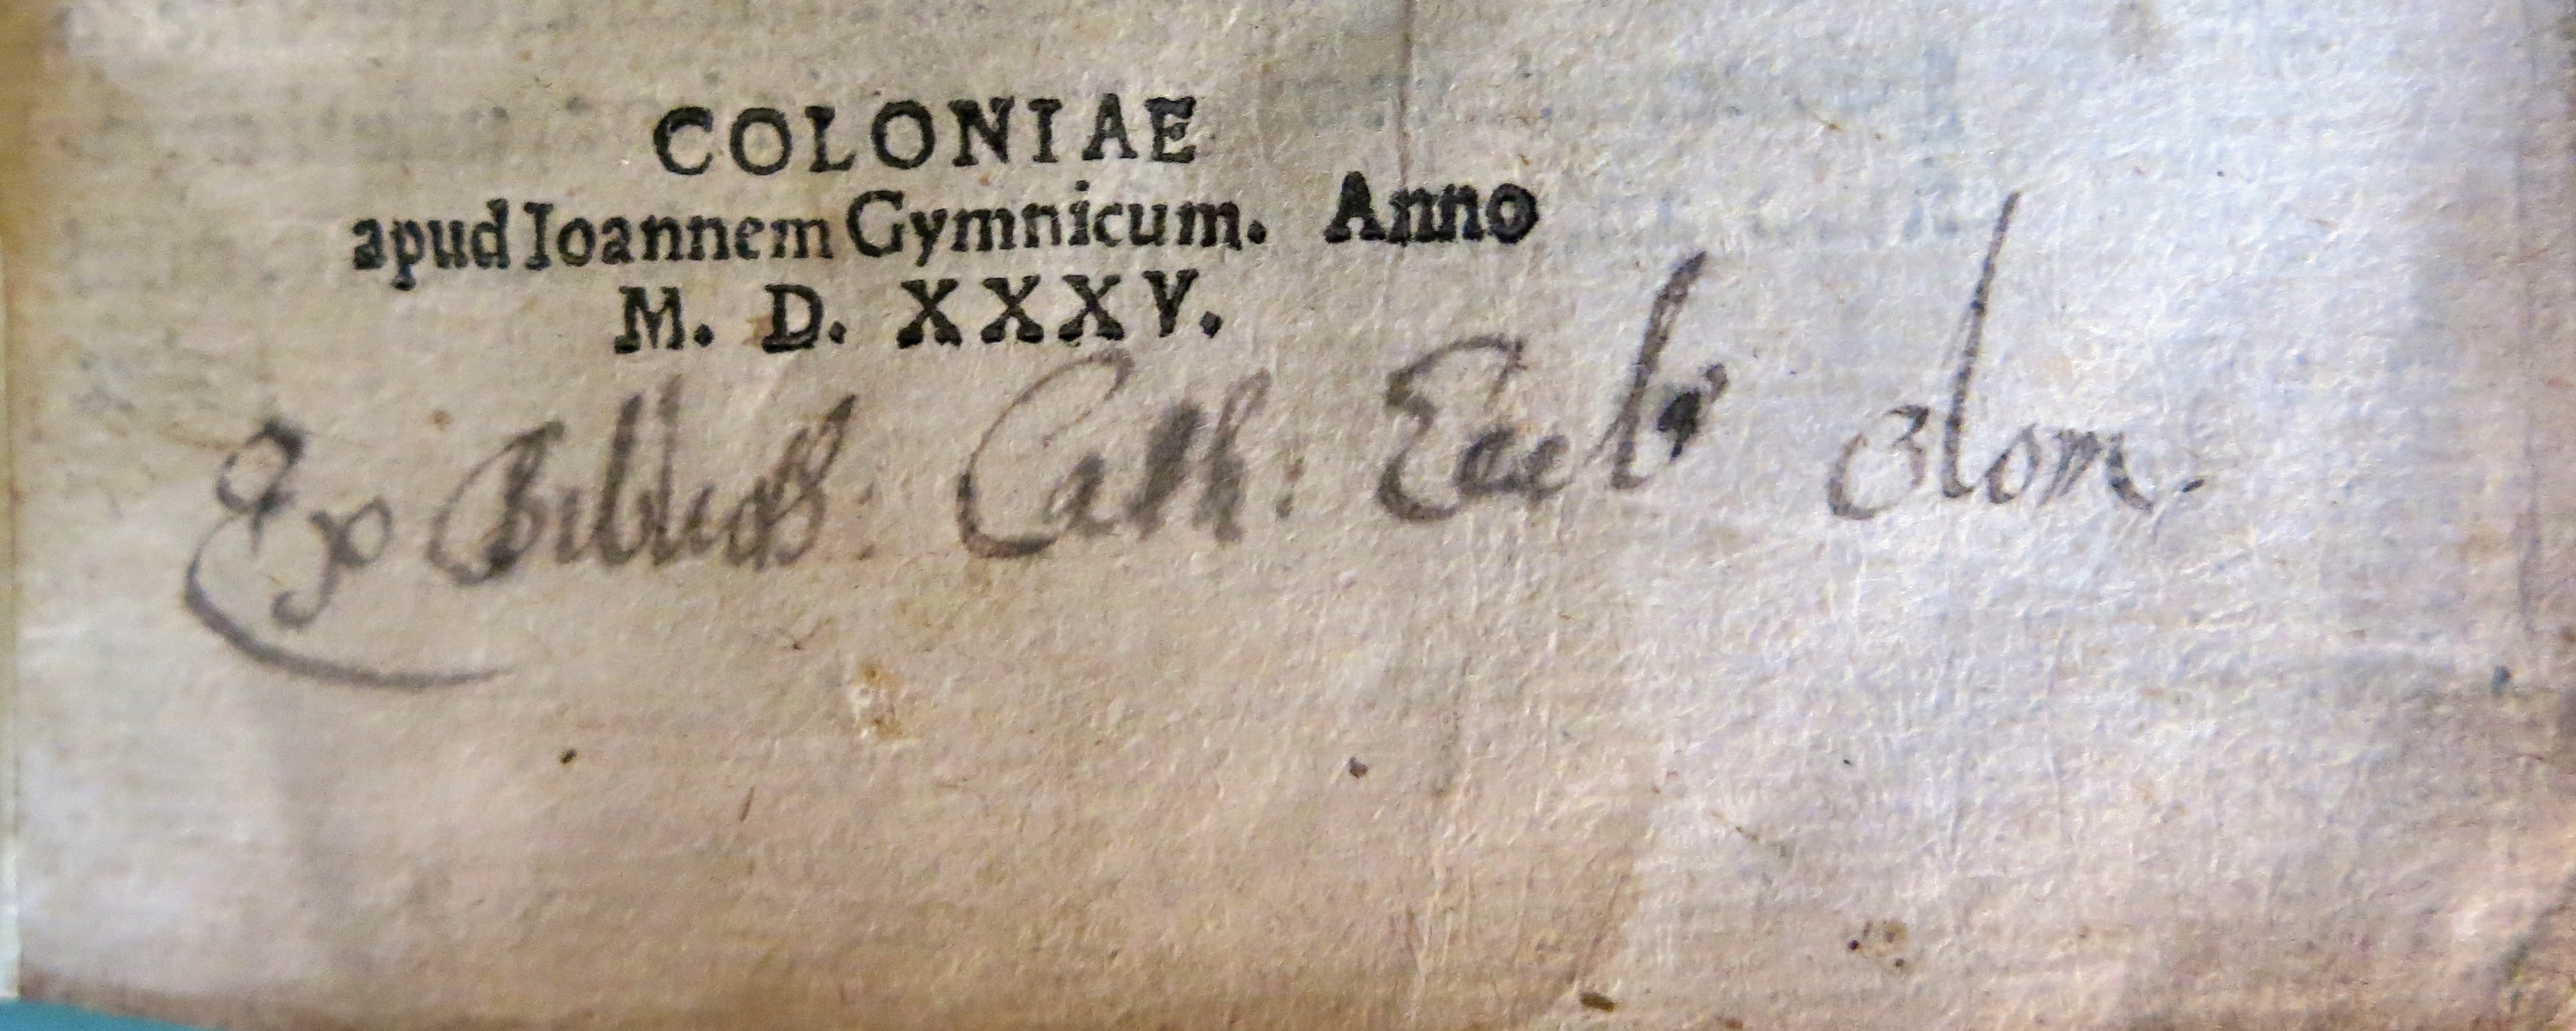 COLONIAE
apud Ioannem Gymnicum. Anno
M. D. XXXV.
Ex Biblioth: Cath: Eccl. Olom.